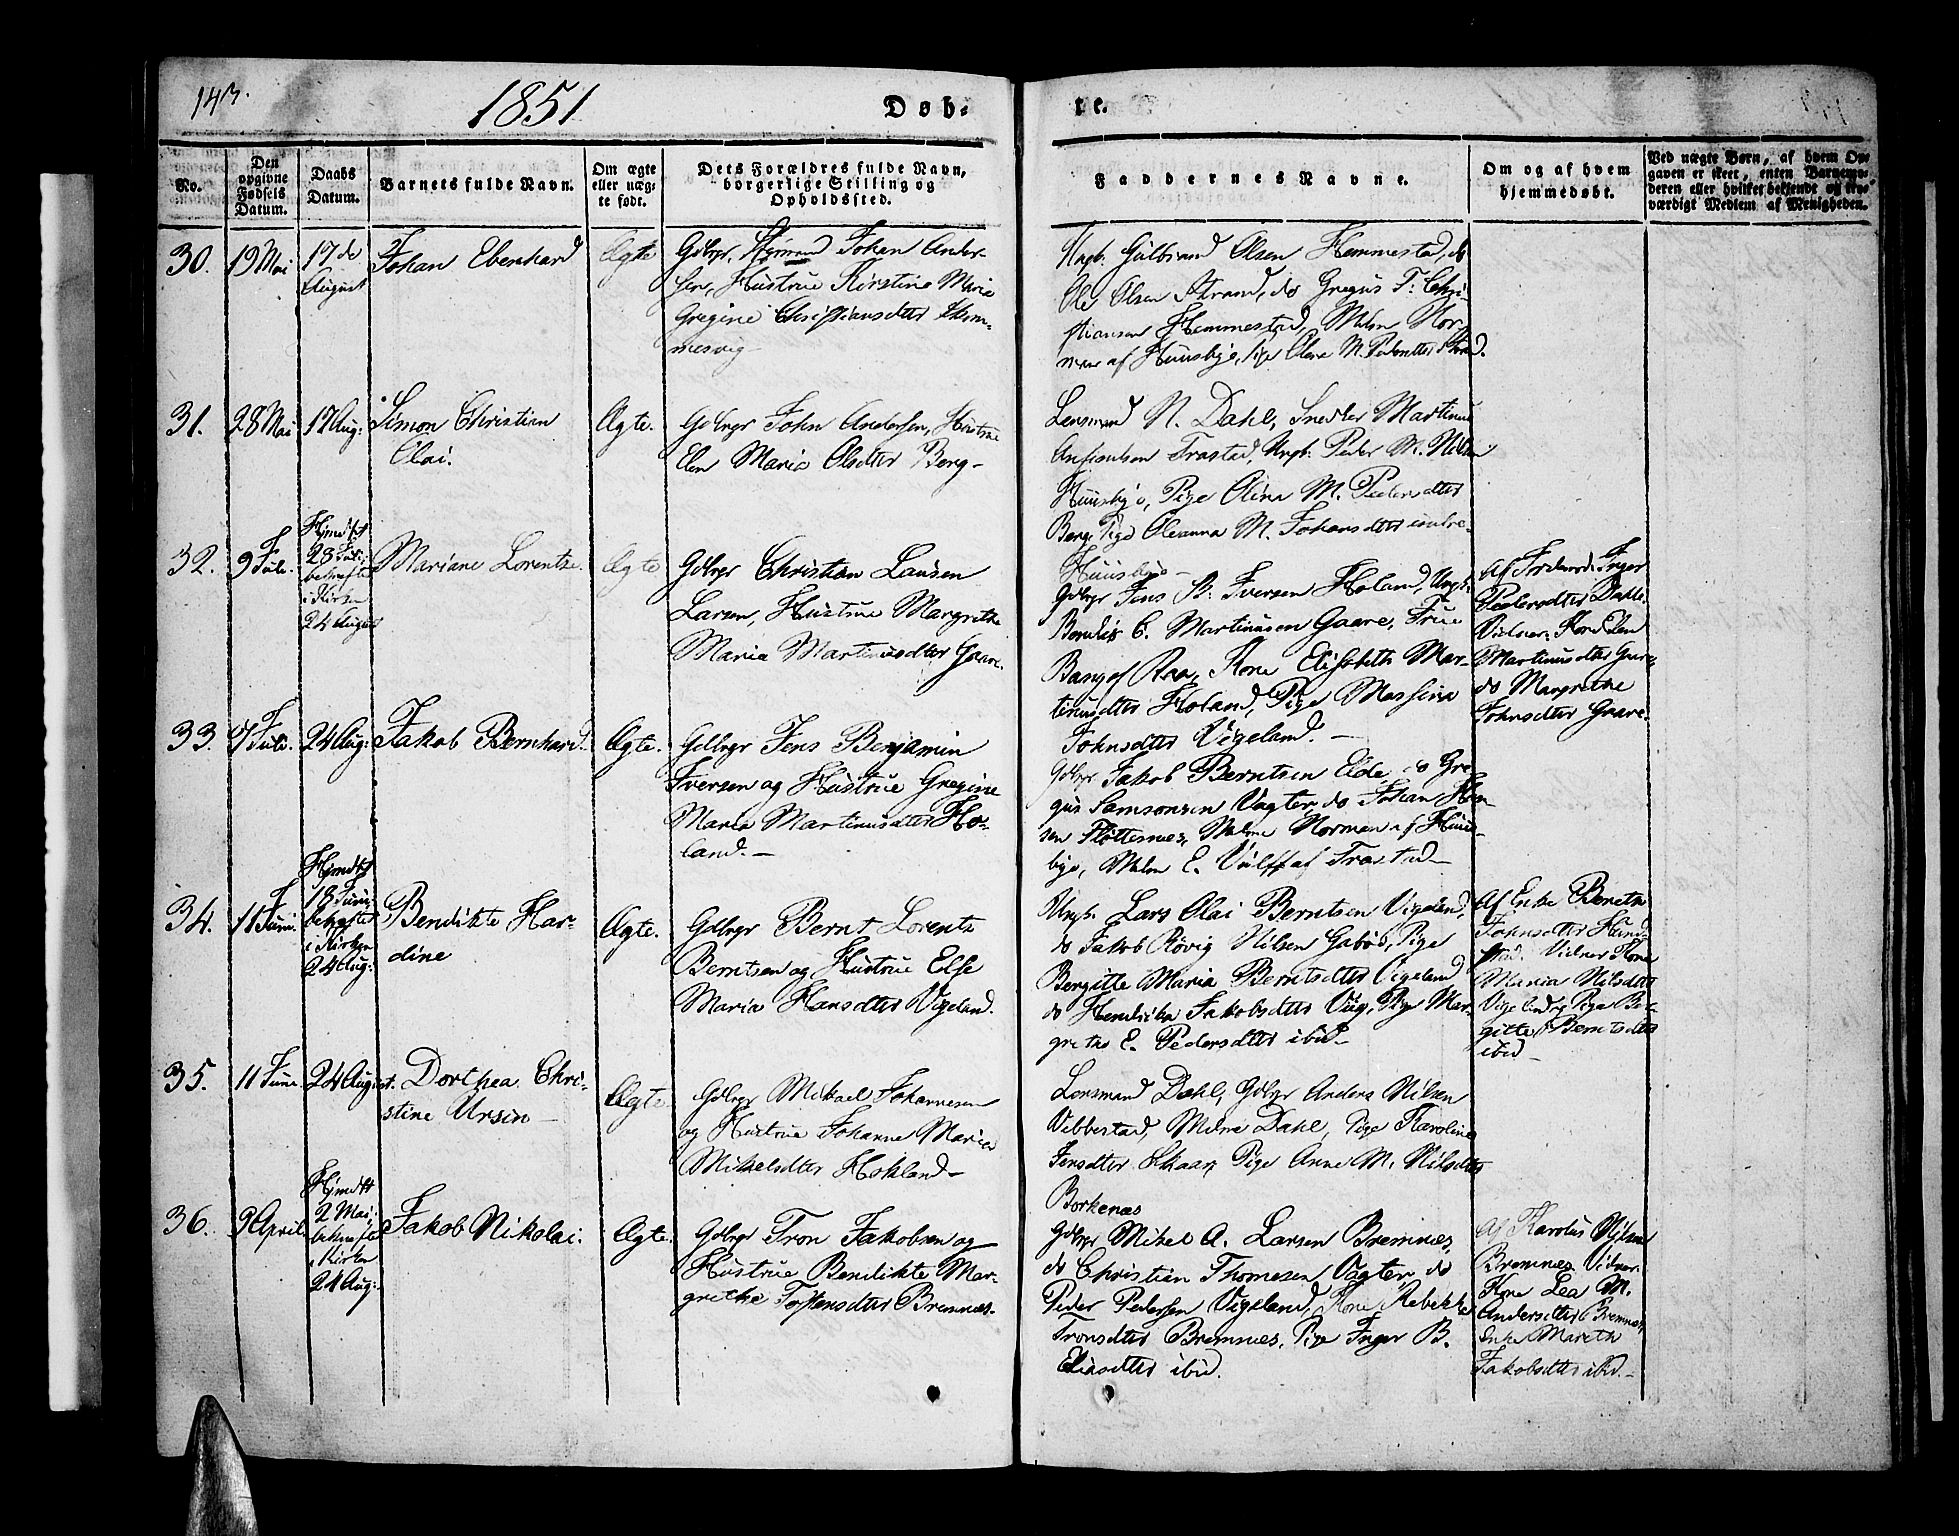 143.
1851
Døb-
te.
No.
Den opgivne Fødsels Datum.
Daabs Datum.
Barnets fulde Navn.
Om ægte eller uægte født.
Dets Forældres fulde Navn, borgerlige Stilling og Opholdssted.
Faddernes Navne.
Om og af hvem hjemmedøbt.
Ved uægte Børn, af hvem Opgaven er skeet, enten Barnemoderen eller hvilket bekjendt og troværdigt Medlem af Menigheden.
30.
19 Mai
17de
August
Johan Eberhard
Ægte
Gdbrgr Johan Ander-
sen, Hustrue Kirstine Marie
Gregine Christiansdtter
Ungk. Gulbrand Olsen Hemmestad, do
Ole Olsen Strand, do Gregus T. Chri-
stiansen Hemmestad, Mdm Nor-
man af Huusbye, Pige Olave M. Pedersdtter
31.
28 Mai
17 Aug:
Simon Christian
Olai.
Ægte.
Gdbrgr John Andersen, Hustrue
Elen Maria Olsdtter Berg-
Lensmand N. Dahl, Snedker Martinus
Trastad, Ungk: Peder M. Nilsen
Huusbye, Pige Olina M. Pedersdtter
Berg, Pige Oleanna M. Johansdtter indre-
Huusbye-
32.
9 Juli.
Hjmdbt
28 Juli:
bekræftet
i Kirken
24 August
Mariane Lorentze.
Ægte
Gdbrgr Christian Lausen
Larsen, Hustrue Margrethe
Maria Martinusdtter Gaare.
Gdbrgr Jens B. Iversen Holand, Ungk.
C. Martinusen Gaare, Frue
Bang af Raa, Kone Elisabeth Mar-
tinusdtter Holand, Pige Massina
Johnsdtter Vigeland. -
Af Jordemod: Inger
Pedersdtter Dahle.
Vidner: Kone Elen
Martinusdtter Gaare
do Margrethe
Johnsdtter Gaare.
33.
7 Juli.
24 Aug:
Jakob Bernhard.
Ægte.
Gdbrgr Jens Benjamin
Iversen og Hustrue Gregine
Maria Martinusdtter Ho-
land.-
Gdbrgr Jakob Berntsen Elde, do Gre-
gus Samsonsen Vagter, do Johan Han-
sen Fløtternæs, Mdm Norman af Huus-
bye, Mdm E. Vulff af Trastad-
34.
11 Juni.
Hjmdbt
18 Juni,
bekræftet
i Kirken
24 Aug:
Bendikte Har-
dine
Ægte.
Gdbrgr Bernt Lorentz
Berntsen og Hustrue Else
Maria Hansdtter Vigeland.
Ungk. Lars Olai Berntsen Vigeland,
do Jakob Røvig Nilsen Gabøe, Pige
Bergitte Maria Berntsdtter Vigeland
do Hendrika Jakobsdtter Viig, Pige Mar-
grethe E. Pedersdtter ibid-
Af Enke
Johnsdtter
Vidner Kone
Maria Nilsdtter
Vigeland, Pige Ber-
gitte Berntsdtter
ibid-
35.
11 Juni
24 August.
Dorthea Chri-
stine Ursin-
Ægte.
Gdbrgr Mikael Johannesen
og Hustrue Johanne Maria
Mikelsdtter Hokland-
Lensmand Dahl, Gdbrgr Anders Nilsen
Vebbestad, Mdm Dahl, Pige Karoline
Jensdtter Skaar, Pige Anne M. Nilsdtter
Borkenæs
36.
9 April.
Hjmdbt
2 Mai,
bekræftet
i Kirken
24 Aug:
Jakob Nikolai.
Ægte.
Gdbrgr Tron Jakobsen og
Hustrue Bendikte Mar-
grethe Torstensdtter Bremnæs.
Gdbrgr Mikel A. Larsen Bremnæs,
do Christian Thomesen Vagter, do
Peder Pedersen Vigeland, Kone Rebekka
Tronsdtter Bremnæs, Pige Inger B.
Eliasdtter ibid.
Af Karolus Nilsen
Bremnæs. Vidner:
Kone Lea M.
Andersdtter Bremnæs,
Enke Mareth
Jakobsdtter ibid.-